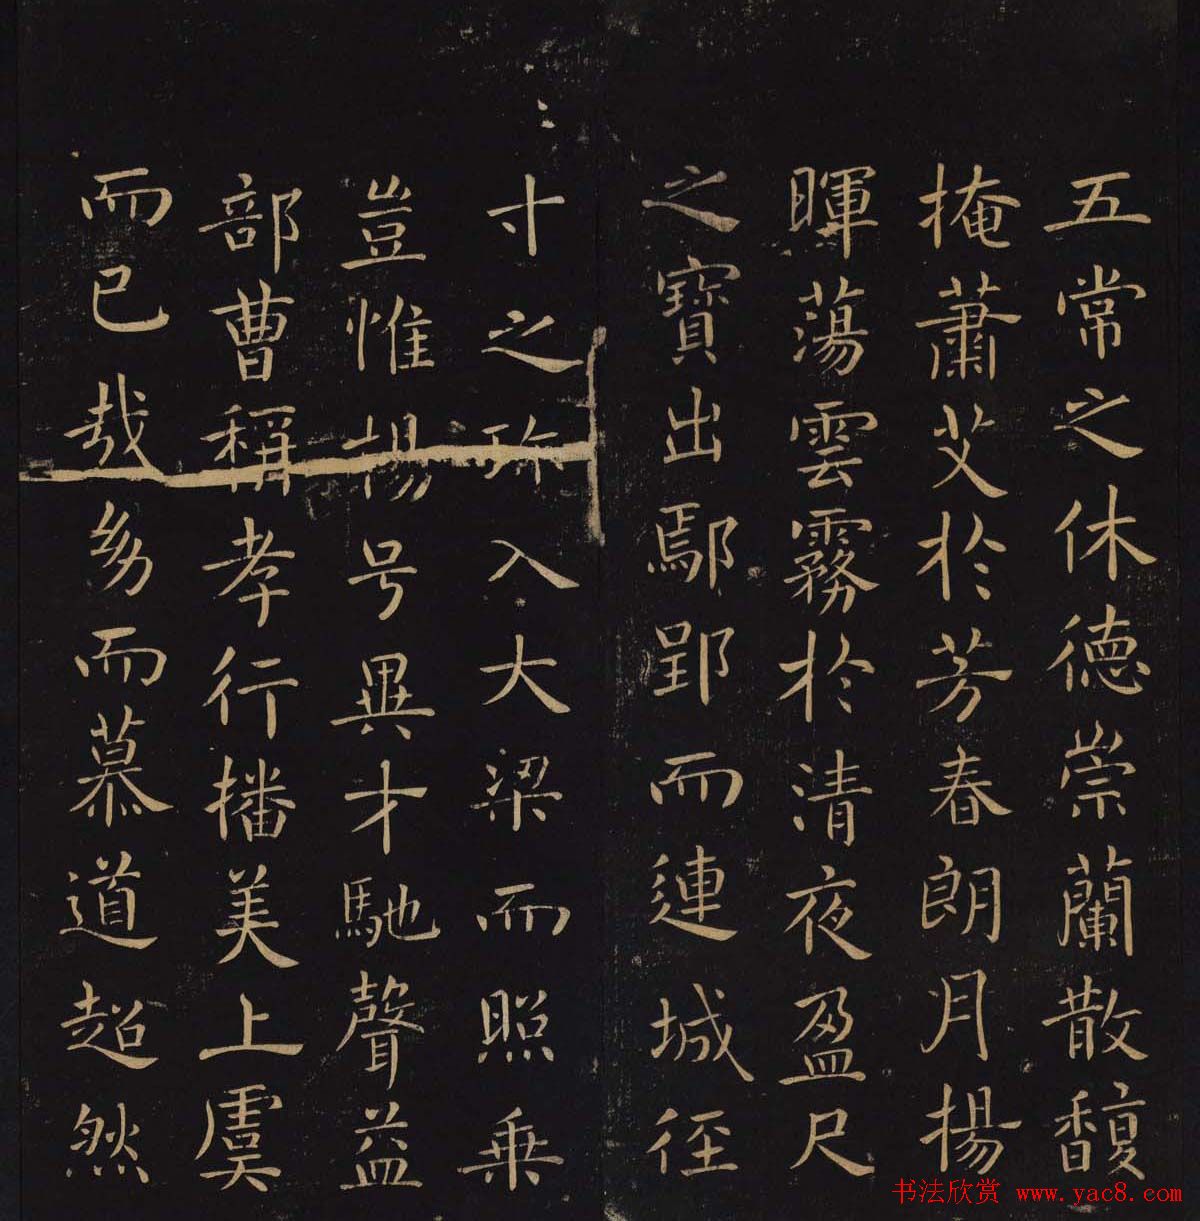 五常之休德崇蘭散馥
掩蕭艾於芳春朗月揚
暉蕩雲霧於清夜盈尺
之寶出鄢郢而連城徑
寸之珎入大梁而照乗
豈惟楊号異才馳聲益
部曹稱孝行播美上虞
而已哉幼而慕道超然
书法欣赏 www.yac8.com